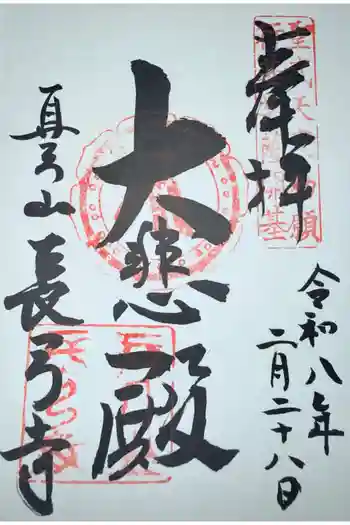 奉拝
令和八年
二月二十八日
大悲殿
真弓山
長弓寺